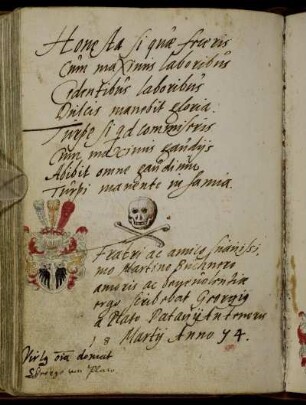 Honesta si quæ feceris
Cum maximis laboribus
Cedentibus laboribus
Dulcis manebit gloria.
Turpe si qd commiseris
Cum maximis gaudijs
Abibit omne gaudium
Turpi manente infamia.
Fratri ac amico suauissi
mo Martino Buchnero
amoris ac beneuolentiæ
ergo scribebat Georgius
a Plato Patauij Antenoris
8 Martij Anno 74.
Virtus oīa domat